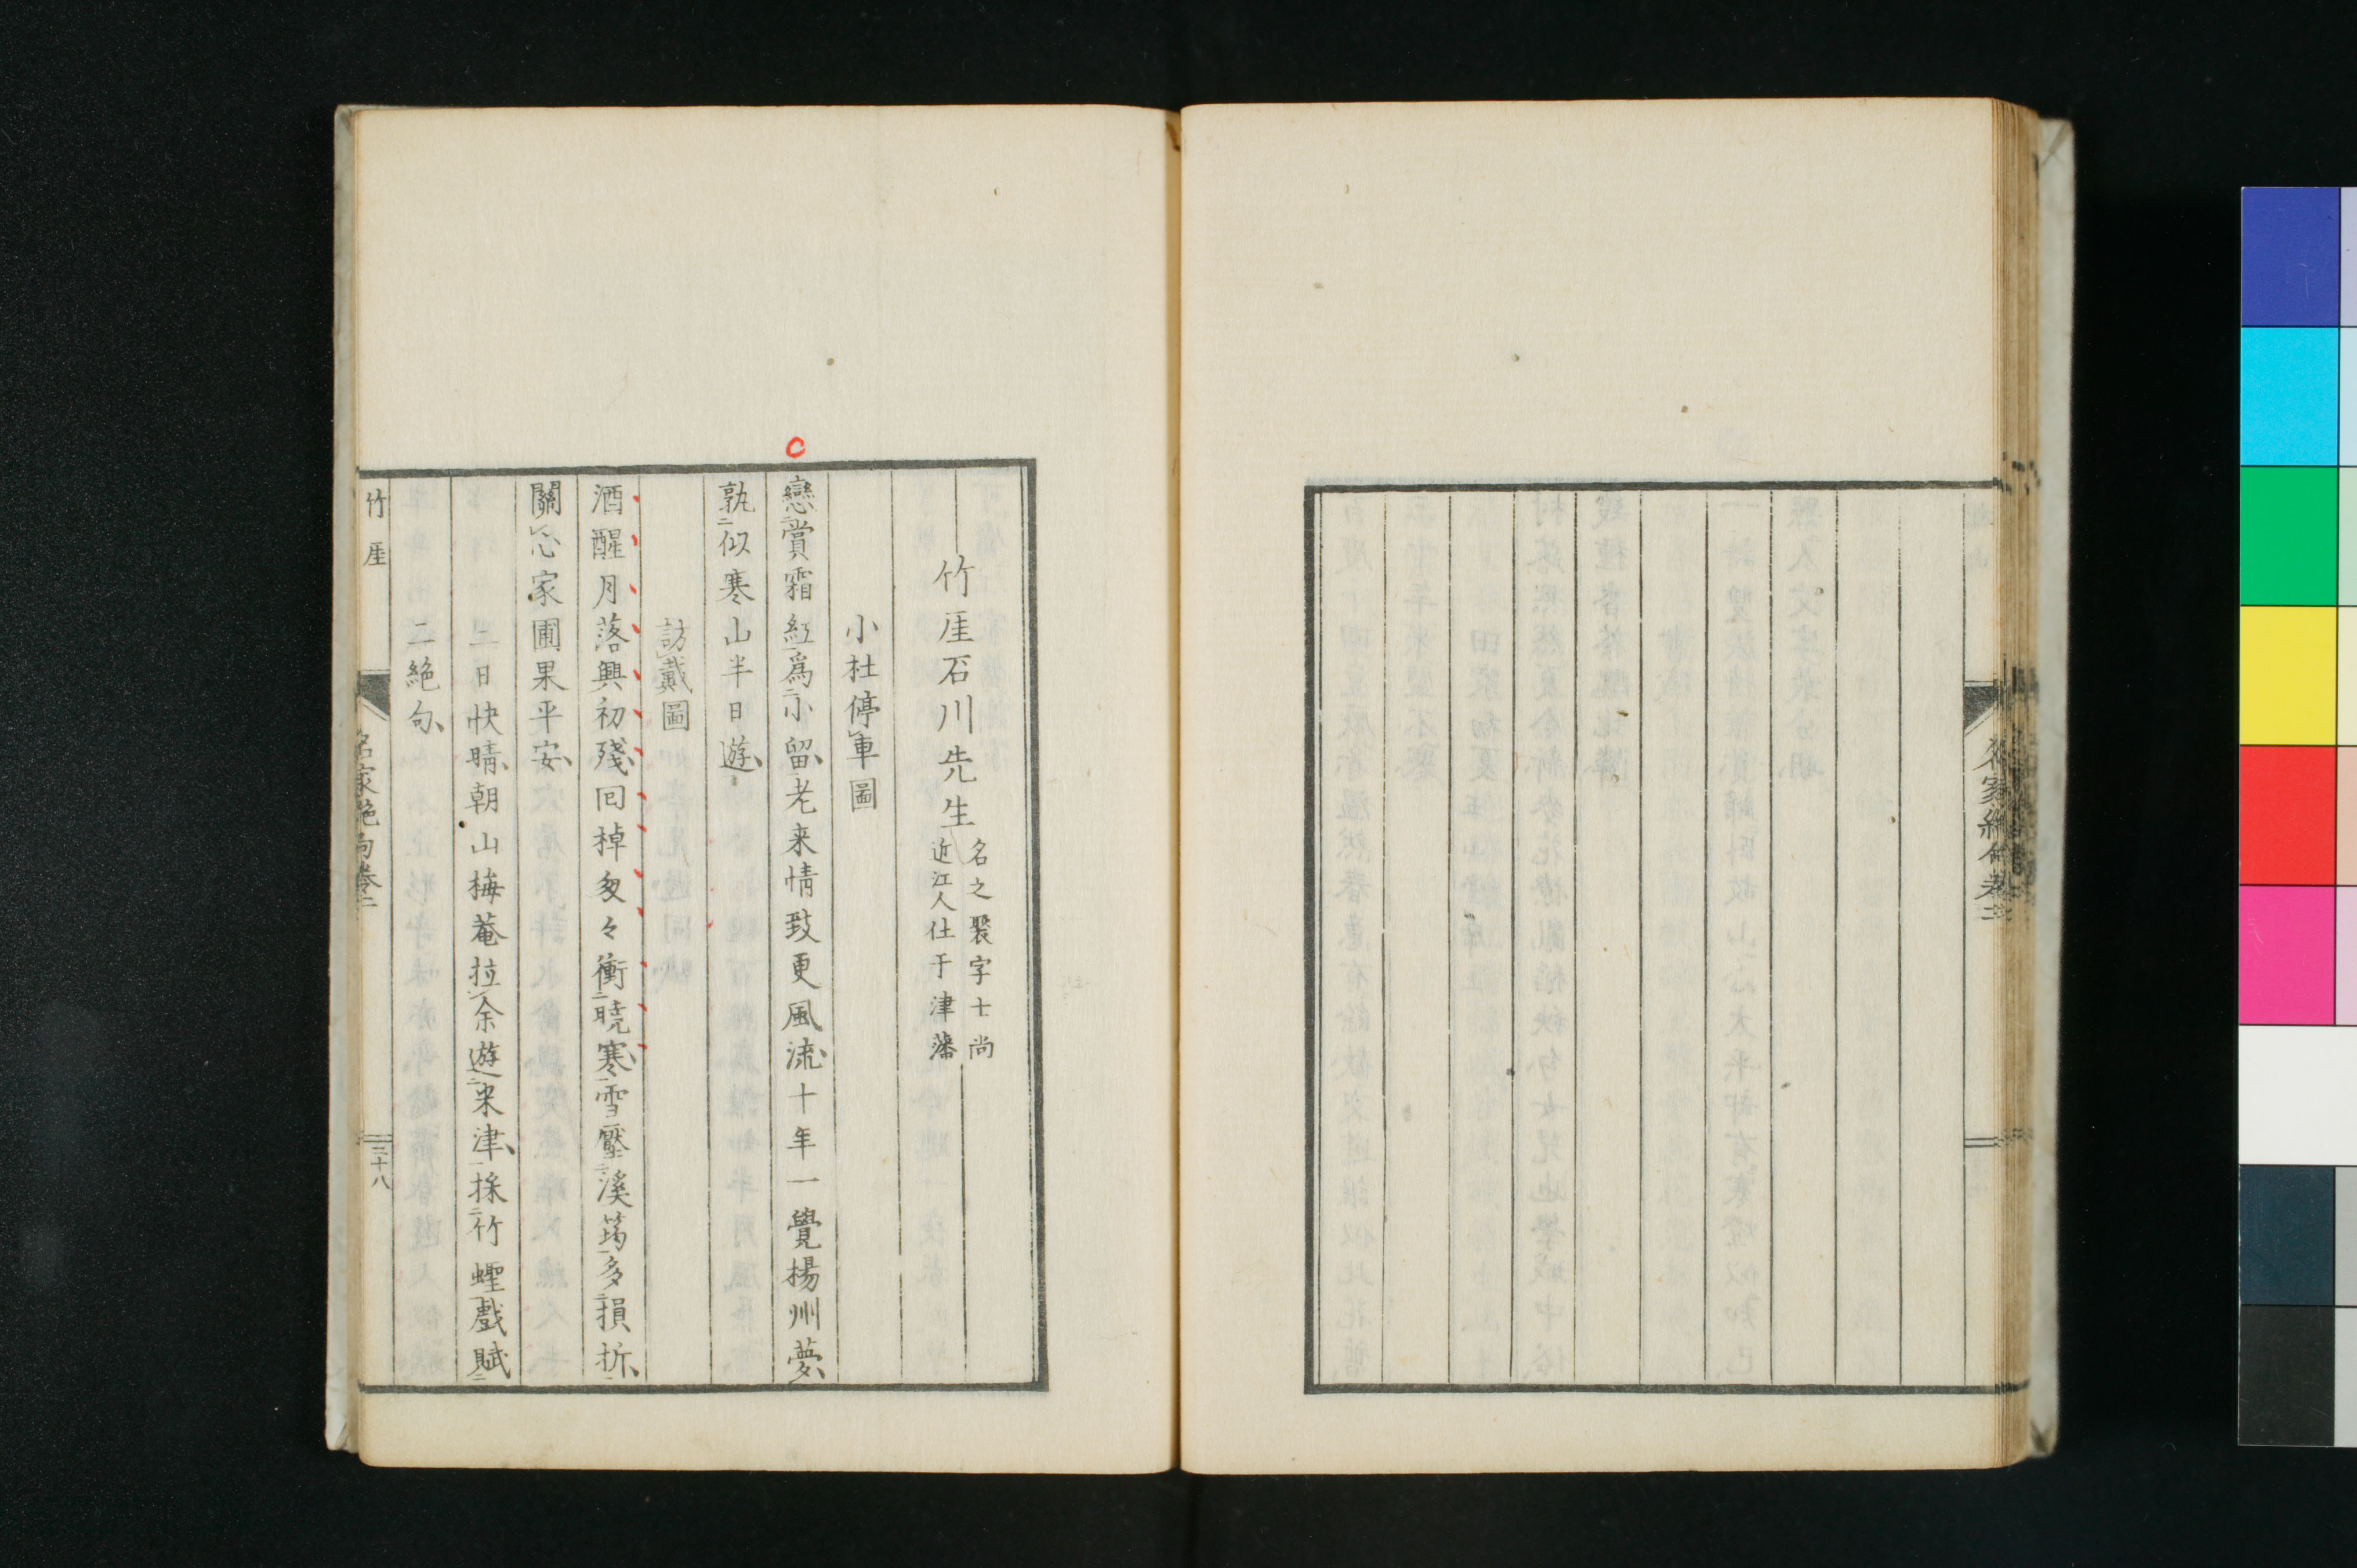 名家絶句卷二
竹厓石川先生
名之褧字士尚
近江人仕于津藩
小杜停車圖
戀賞霜紅爲小留老来情致更風流十年一覺揚州夢
孰似寒山半日遊
訪戴圖
酒醒月落興初殘回棹匆々衝曉寒雪壓溪筠多損折
關心家圃果平安
二日快晴朝山梅菴拉余遊米津採竹蟶戯賦
二絶句
竹厓
名家絶句卷二
三十八